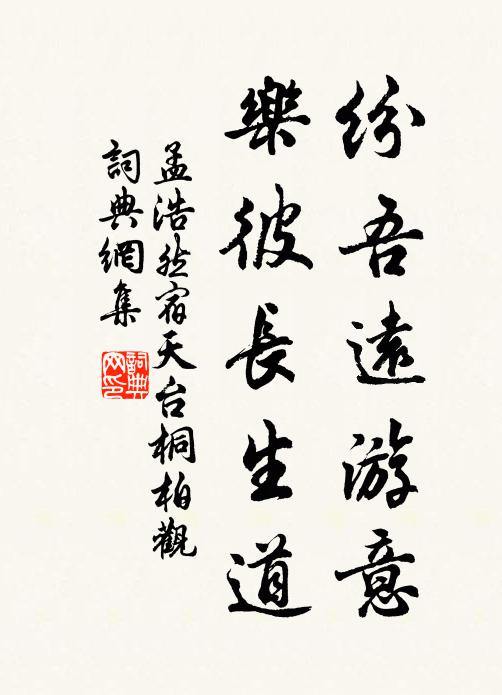 紛吾遠游意
樂彼長生道
孟浩然宿天台桐柏觀
詞典網集
詞典网印